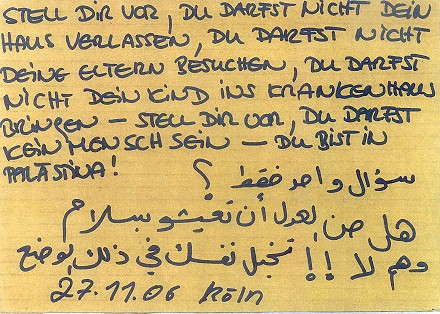 STELL DIR VOR, DU DARFST NICHT DEIN
HAUS VERLASSEN, DU DARFST NICHT
DEINE ELTERN BESUCHEN, DU DARFST
NICHT DEIN KIND INS KRANKENHAUS
BRINGEN – STELL DIR VOR, DU DARFST
KEIN MENSCH SEIN – DU BIST IN
PALÄSTINA!
سؤال واحد فقط ؟
هل من لعدل أن تعيشو بسلام
وهم لا !! تخيل نفسك في ذلك لوضع
27.11.06 Köln